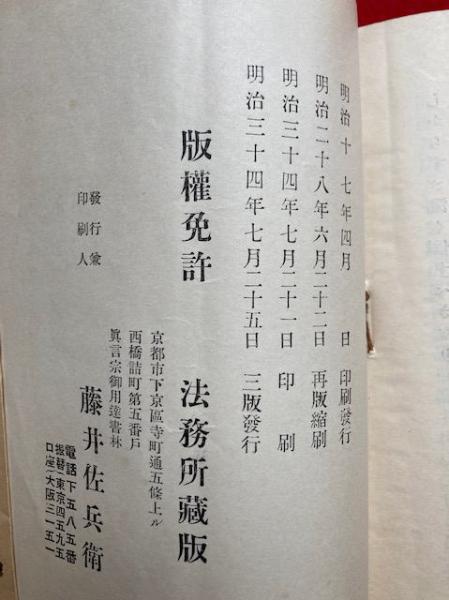 明治十七年四月 日 印刷發行
明治二十八年六月二十二日 再版縮刷
明治三十四年七月二十一日 印刷
明治三十四年七月二十五日 三版發行
版權免許 法務所藏版
京都市下京區寺町通五條上ル
西橋詰町第五番戶
眞言宗御用達書林
發行兼
印刷人
藤井佐兵衛
電話下五八五番
振替 東京四五九五
口座 大阪三一五一